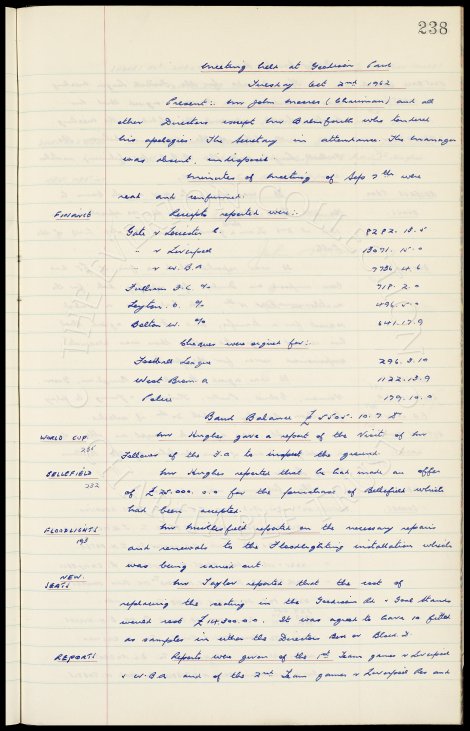 238
Meeting held at Goodison Park
Tuesday Oct 2nd 1962
Present:- Mr John Moores (Chairman) and all
other Directors except Mr who tendered
his apologies. The Secretary in attendance. The Manager
was absent, indisposed.
Minutes of Meeting of Sep 7th were
read and confirmed.
FINANCE Receipts reported were:-
Gate v Leicester C. 8292. 18. 5
" v Liverpool 13071. 15. 0
" v W.B.A 7736. 4. 6
Fulham F.C. % 718. 2. 0
Leyton. O. % 496. 5. 0
Bolton W. % 641. 17. 9
Cheques were signed for:-
Football League 296. 3. 10
West Brom. A 1122. 13. 9
Police 179. 10. 0
Bank Balance £ 5505. 10. 7
WORLD CUP. Mr Hughes gave a report of the Visit of Mr
235
Follows of the F.A. to inspect the ground.
BELLEFIELD Mr Hughes reported that he had made an offer
232
of £ 25.000. 0. 0 for the purchase of Bellefield which
had been accepted.
FLOODLIGHTS Mr reported on the necessary repairs
193
and renewals to the Floodlighting installation which
was being carried out
NEW SEATS Mr Taylor reported that the cost of
replacing the seating in the Goodison Rd & Goal Stands
would cost £ 14,300. 0. 0. It was agreed to have 10 fitted
as samples in either the Directors Box or Block
REPORTS Reports were given of the 1st Team games v Liverpool
v W.B.A and of the 2nd Team games v Liverpool Res and